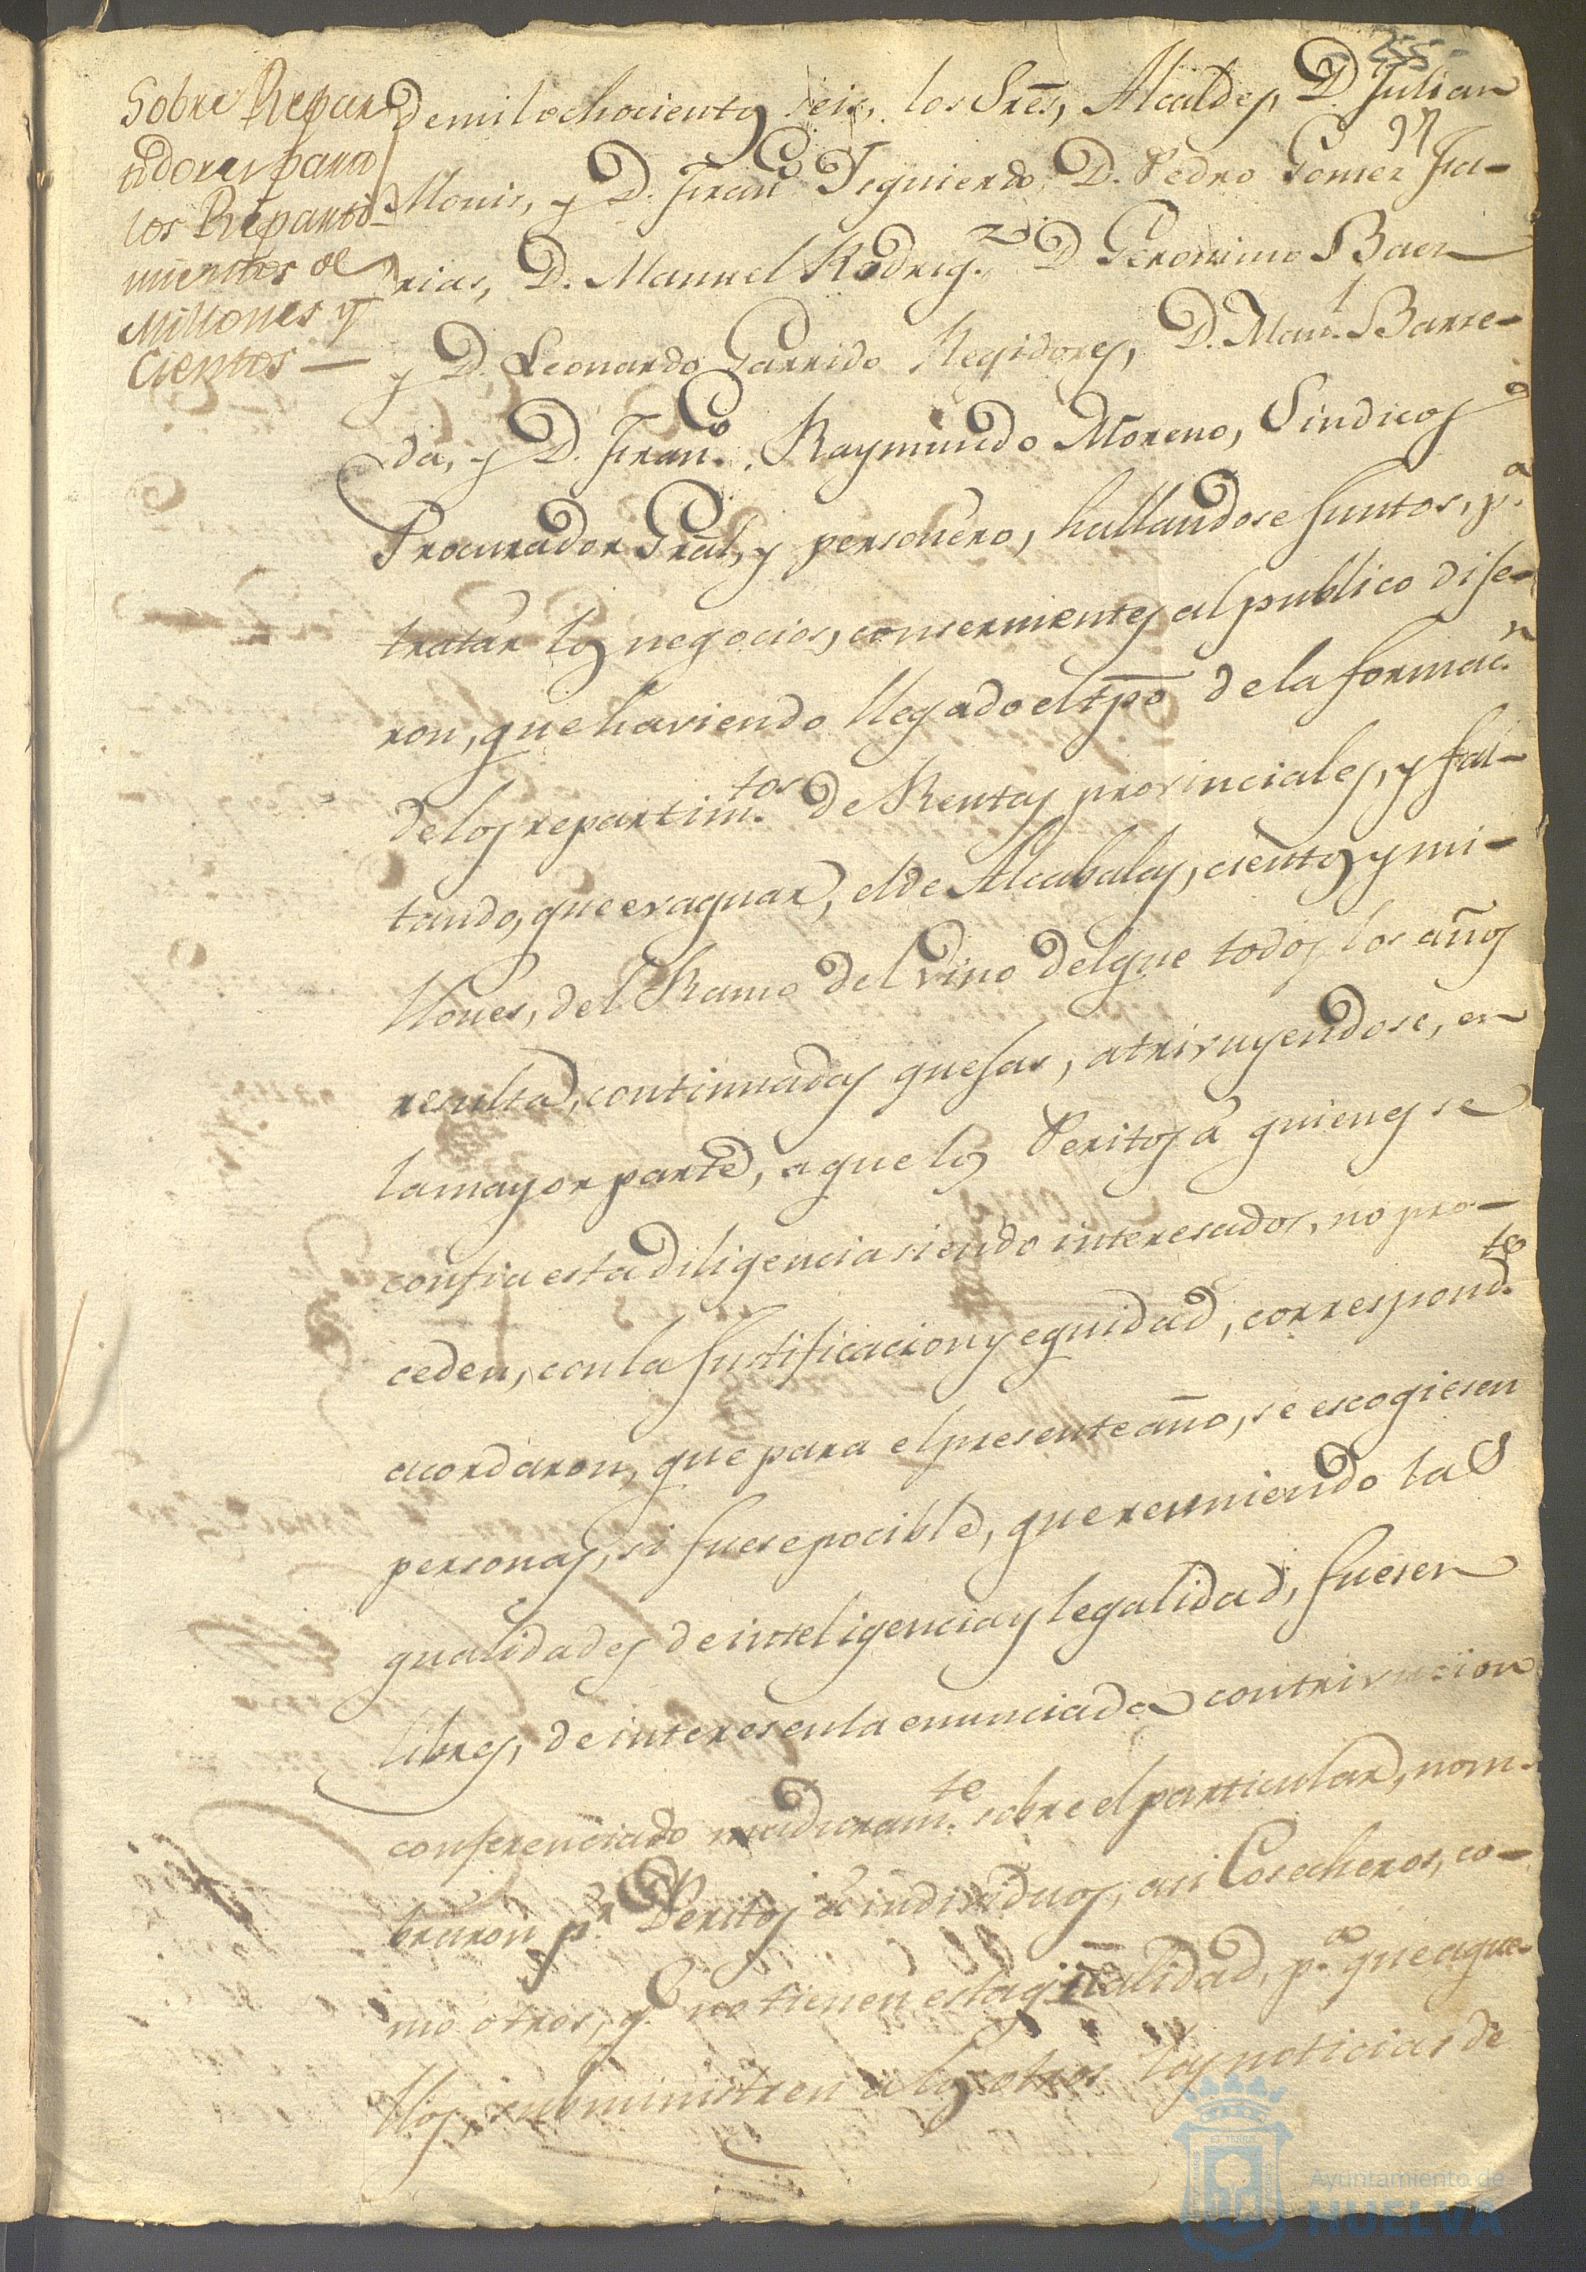 255
Sobre Repar
tidores para
los Reparti-
mientos de
Millones y
Cientos —
de mil ochocientos seis, los Sres, Alcaldes, D. Julian
Monis, y D. Franco Ysquierdo, D. Pedro Gomez
rias, D. Manuel Rodrigz. D Geronimo Baez
y D. Leonardo Garrido Regidores, D. Manl. Barre-
da, y D. Franco. Raymundo Moreno, Sindicos
Procurador Gral, y personero, hallandose juntos, pa.
tratar los negocios, consernientes al publico dije-
ron, que haviendo llegado el tpo de la formacn.
de los repartimtos. de Rentas provinciales, y fal-
tando, que evaquar, el de Alcabalas, cientos y mi-
llones, del Ramo del vino del que todos los años
resulta, continuadas quejas, atrivuyendose, en
la mayor parte, a que los Peritos à quienes se
confia esta diligencia siendo interesados, no pro-
ceden, con la justificacion y equidad, correspondte.
acordaron, que para el presente año, se escogiesen
personas, si fuese pocible, que reuniendo las
qualidades de inteligencia y legalidad, fuesen
libres, de interes en la enunciada contrivucion
conferenciado maduramte. sobre el particular, nom-
braron pr. Peritos à individuos, asi Cosecheros, co-
mo otros, q. no tienen esta qualidad, pa. que aque-
llos, subministren a los otros las noticias de
Ayuntamiento de
HUELVA